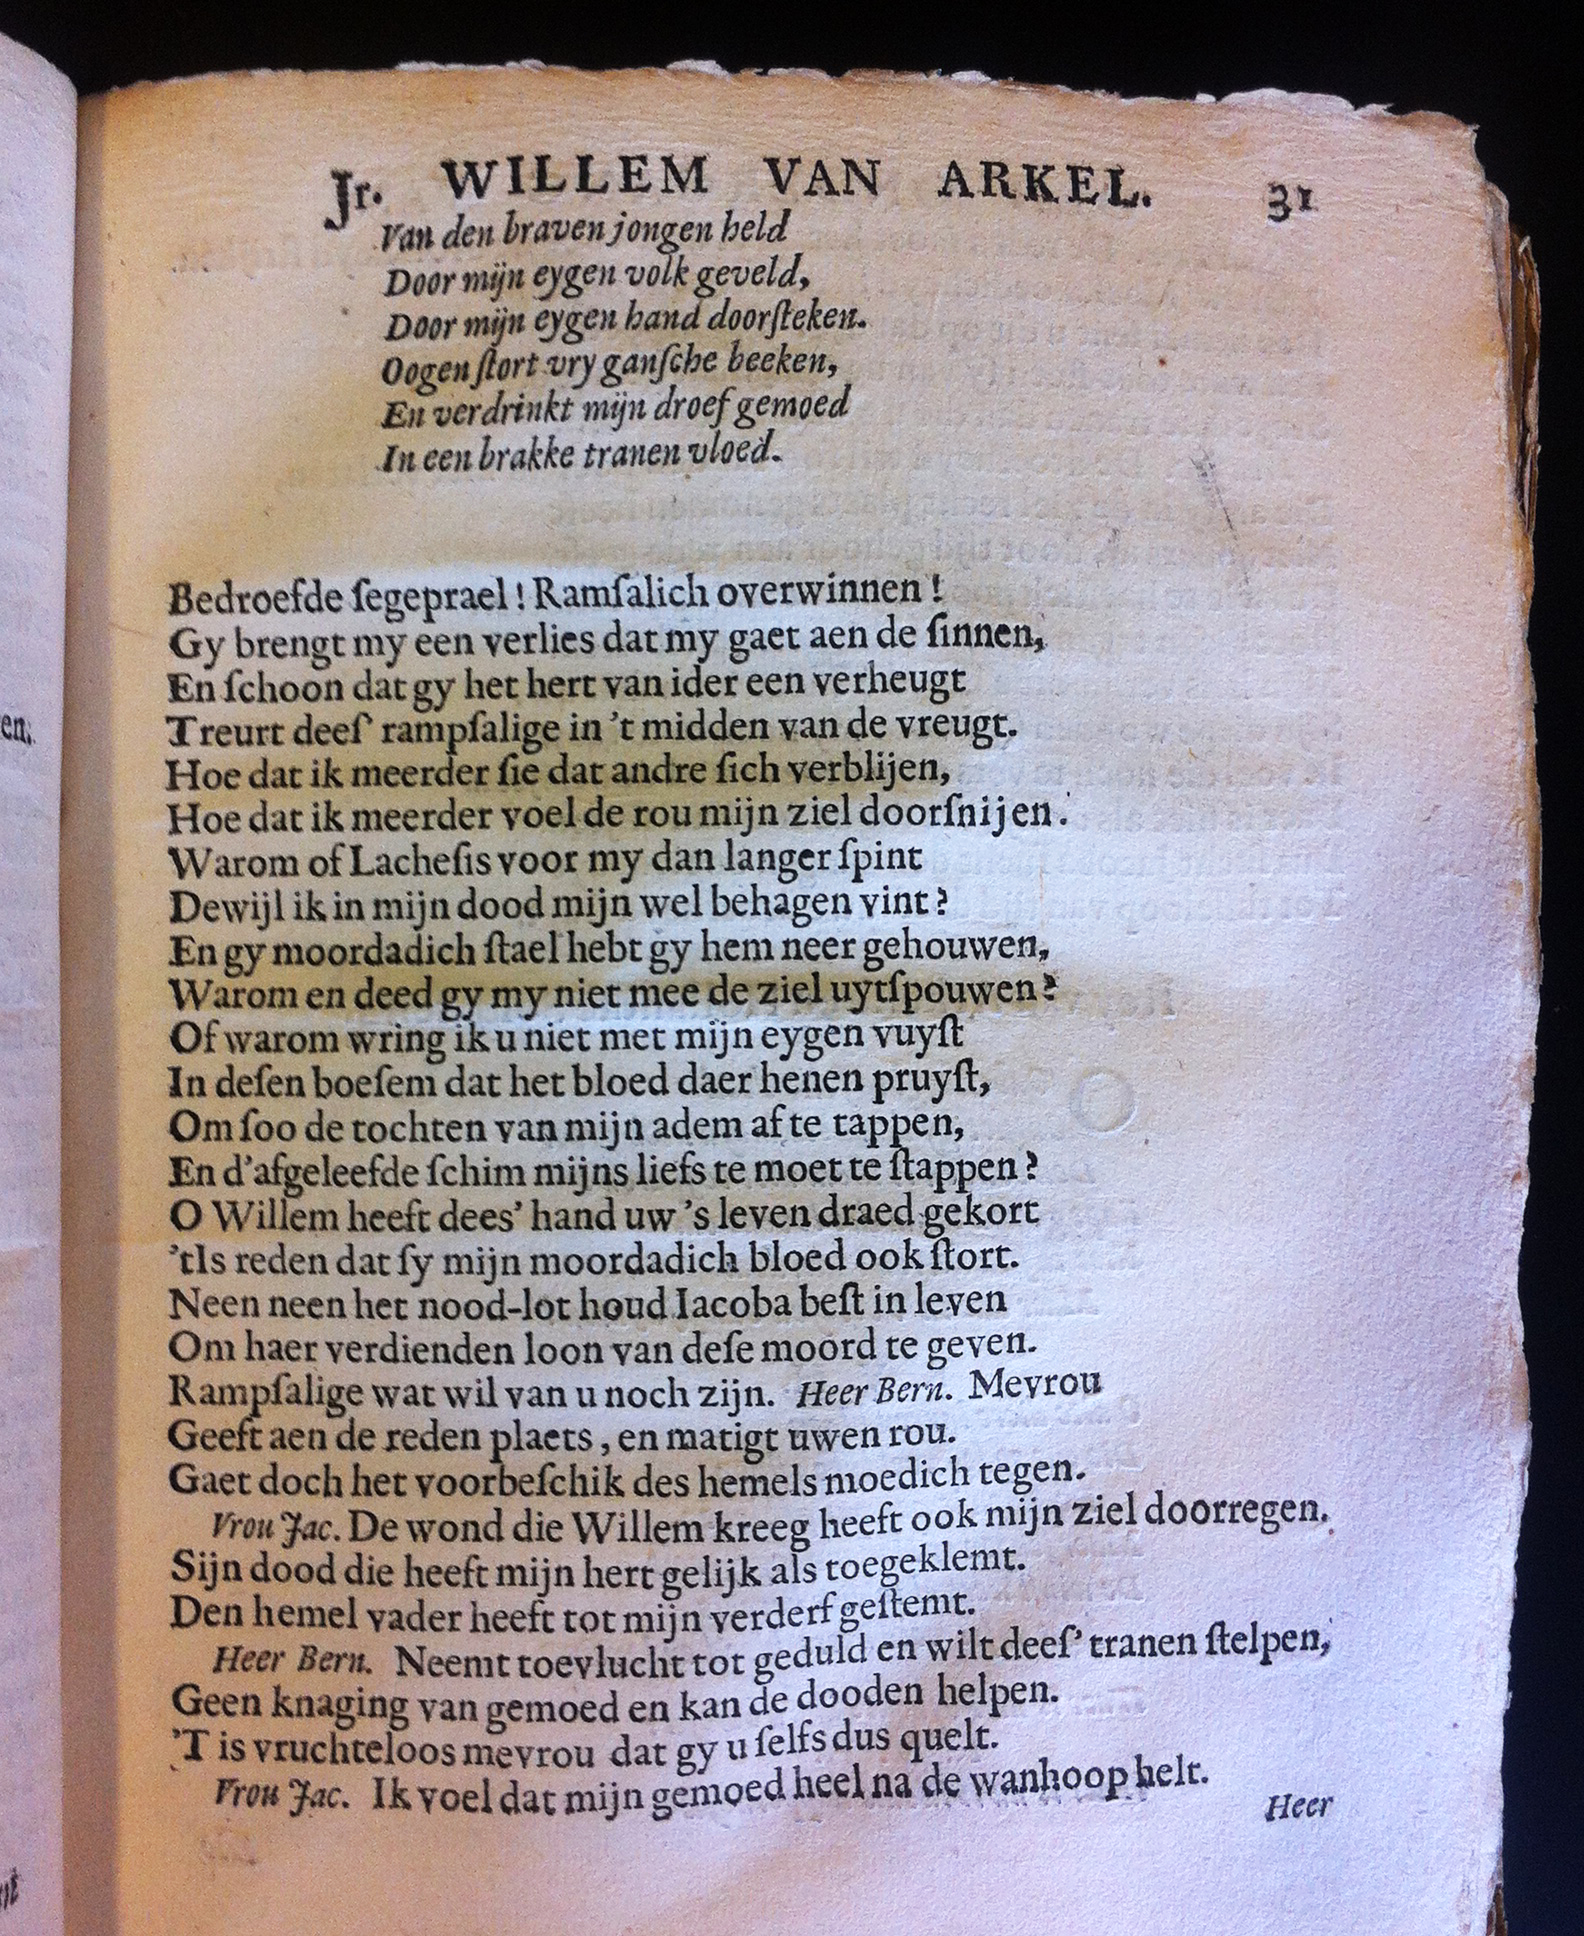 Jr. WILLEM VAN ARKEL. 31
Van den braven jongen held
Door mijn eygen volk geveld,
Door mijn eygen hand doorſteken.
Oogen ſtort vry ganſche beeken,
En verdrinkt mijn droef gemoed
In een brakke tranen vloed.
Bedroefde ſegeprael! Ramſalich overwinnen!
Gy brengt my een verlies dat my gaet aen de ſinnen,
En ſchoon dat gy het hert van ider een verheugt
Treurt deeſ' rampſalige in 't midden van de vreugt.
Hoe dat ik meerder ſie dat andre ſich verblijen,
Hoe dat ik meerder voel de rou mijn ziel doorſnijen.
Warom of Lacheſis voor my dan langer ſpint
Dewijl ik in mijn dood mijn wel behagen vint?
En gy moordadich ſtael hebt gy hem neer gehouwen,
Warom en deed gy my niet mee de ziel uytſpouwen?
Of warom wring ik u niet met mijn eygen vuyſt
In deſen boeſem dat het bloed daer henen pruyſt,
Om ſoo de tochten van mijn adem af te tappen,
En d'afgeleefde ſchim mijns liefs te moet te ſtappen?
O Willem heeft dees' hand uw 's leven draed gekort
'tIs reden dat ſy mijn moordadich bloed ook ſtort.
Neen neen het nood-lot houd Iacoba beſt in leven
Om haer verdienden loon van deſe moord te geven.
Rampſalige wat wil van u noch zijn. Heer Bern. Mevrou
Geeft aen de reden plaets, en matigt uwen rou.
Gaet doch het voorbeſchik des hemels moedich tegen.
Vrou Jac. De wond die Willem kreeg heeft ook mijn ziel doorregen.
Sijn dood die heeft mijn hert gelijk als toegeklemt.
Den hemel vader heeft tot mijn verderf geſtemt.
Heer Bern. Neemt toevlucht tot geduld en wilt deeſ' tranen ſtelpen,
Geen knaging van gemoed en kan de dooden helpen.
'T is vruchteloos mevrou dat gy u ſelfs dus quelt.
Vrou Jac. Ik voel dat mijn gemoed heel na de wanhoop helt.
Heer
en;